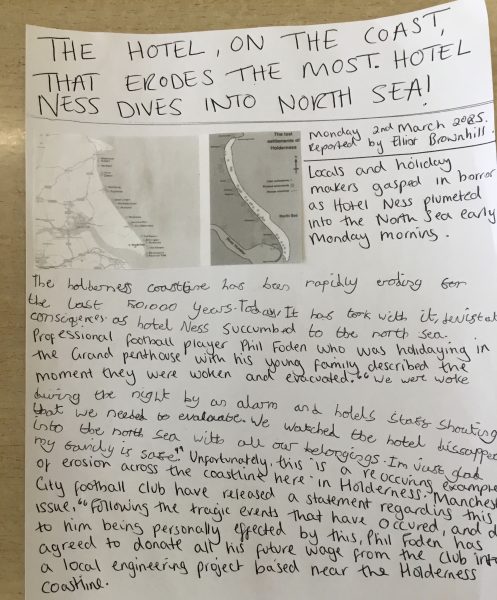 THE HOTEL, ON THE COAST,
THAT ERODES THE MOST. HOTEL
NESS DIVES INTO NORTH SEA!
The lost
settlements of
Holderness
North Sea
Monday 2nd March
Reported by Elliot Brownhill.
Locals and holiday
makers gasped in horror
as Hotel Ness plumeted
into the North Sea early
Monday morning.
The holderness coastline has been rapidly eroding for
the last 50,000 years. Today, It has took with it,
consequences as hotel Ness succumbed to the north sea.
Professional football player Phil Foden who was holidaying in
the Grand penthouse with his young family described the
moment they were woken and evacuated. "We were woke
during the night by an alarm and hotels staff shouting
that we needed to evaluate. We watched the hotel dissappear
into the north sea with all our belongings. Im just glad
my family is safe". Unfortunately, this is a reoccuring example
of erosion across the coastline here in Holderness. Manchest
City football club have released a statement regarding this
issue, "Following the tragic events that have occured, and d
to him being personally effected by this, Phil Foden has
agreed to donate all his future wage from the club into
a local engineering project based near the Holderness
coastline.